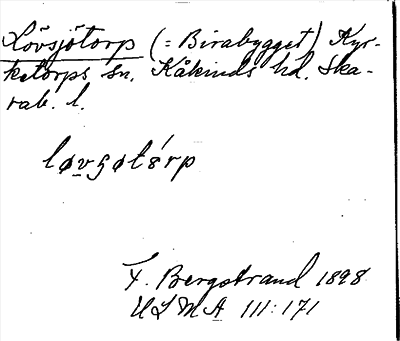 Lövsjötorp (: Birabygget) Kyr-
ketorps sn. Kåkinds hd. Ska-
rab. l.
løvsøtórp
F. Bergstrand 1898
ULMA 111:171